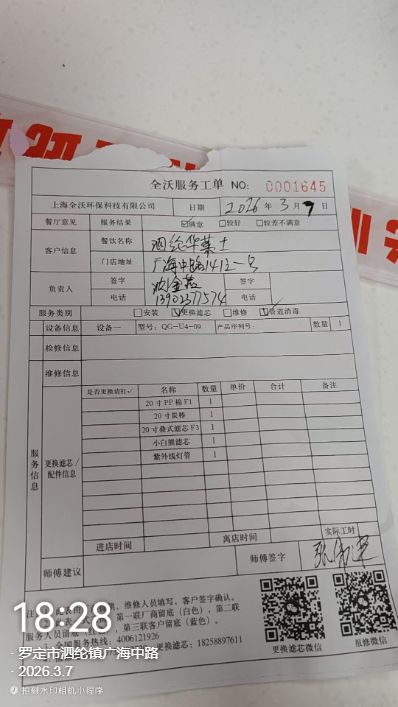 全沃服务工单 NO: 0001645
上海全沃环保科技有限公司 日期 2026年3月7日
餐厅意见 服务结果 ☑满意 □较好 □较差不满意
客户信息 餐饮名称 泗纶华莱士
门店地址 广海中路1412-号
负责人 签字
电话 13902377574
服务类别 □安装 ☑更换滤芯 □维修 ☑管道消毒
设备信息 设备一 型号: QG-U4-09 产品序列号: 数量 1
检修信息
维修信息
服务信息 更换滤芯/配件信息
是否更换请打✓ 名称 数量 单价 合计 备注
20寸PP棉F1 1
20寸炭棒 1
20寸叠式滤芯F3 1
小白熊滤芯 1
紫外线灯管 1
进店时间 离店时间 实际工时
师傅建议 师傅签字
维修人员填写，客户签字确认。
第一联厂商留底（白色），第二联
服务人员留底（红色），第三联客户留底（蓝色）。
全国服务热线: 4006121926
更换滤芯: 18258897611
更换滤芯微信 报修微信
18:28
罗定市泗纶镇广海中路
2026.3.7
水印相机小程序